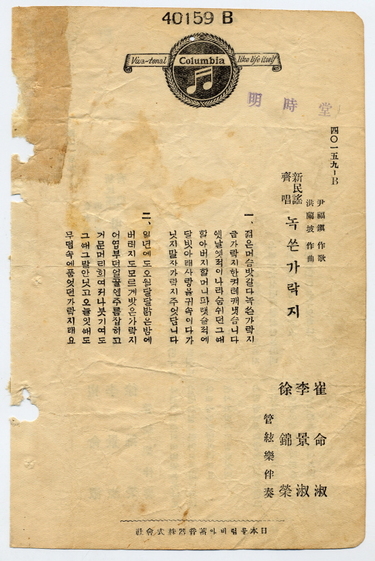 40159 B
Viva-tonal Columbia like life itself
明時堂
四〇一五九-B
新民謠
齊唱
녹쓴가락지
尹福鎭 作歌
洪蘭坡 作曲
一、
금가락지한켜레깨냇슴니다
옛날옛적이나라숨쉬던그때
할아버지할머니파랫슬적에
달빗아래사랑을귀속이다가
닛지말자가락지주엇답니다
二、
일년에도오월달달밝은밤에
버래지도모르게밧은가락지
어엽부던얼골엔주름잡히고
거문머리희여저나붓기여도
그때그말안닛고오늘잇해도
무덤속에품엇던가락지래요
崔命淑
李景淑
徐錦榮
管絃樂伴奏
日本유럼비아蓄音器株式會社